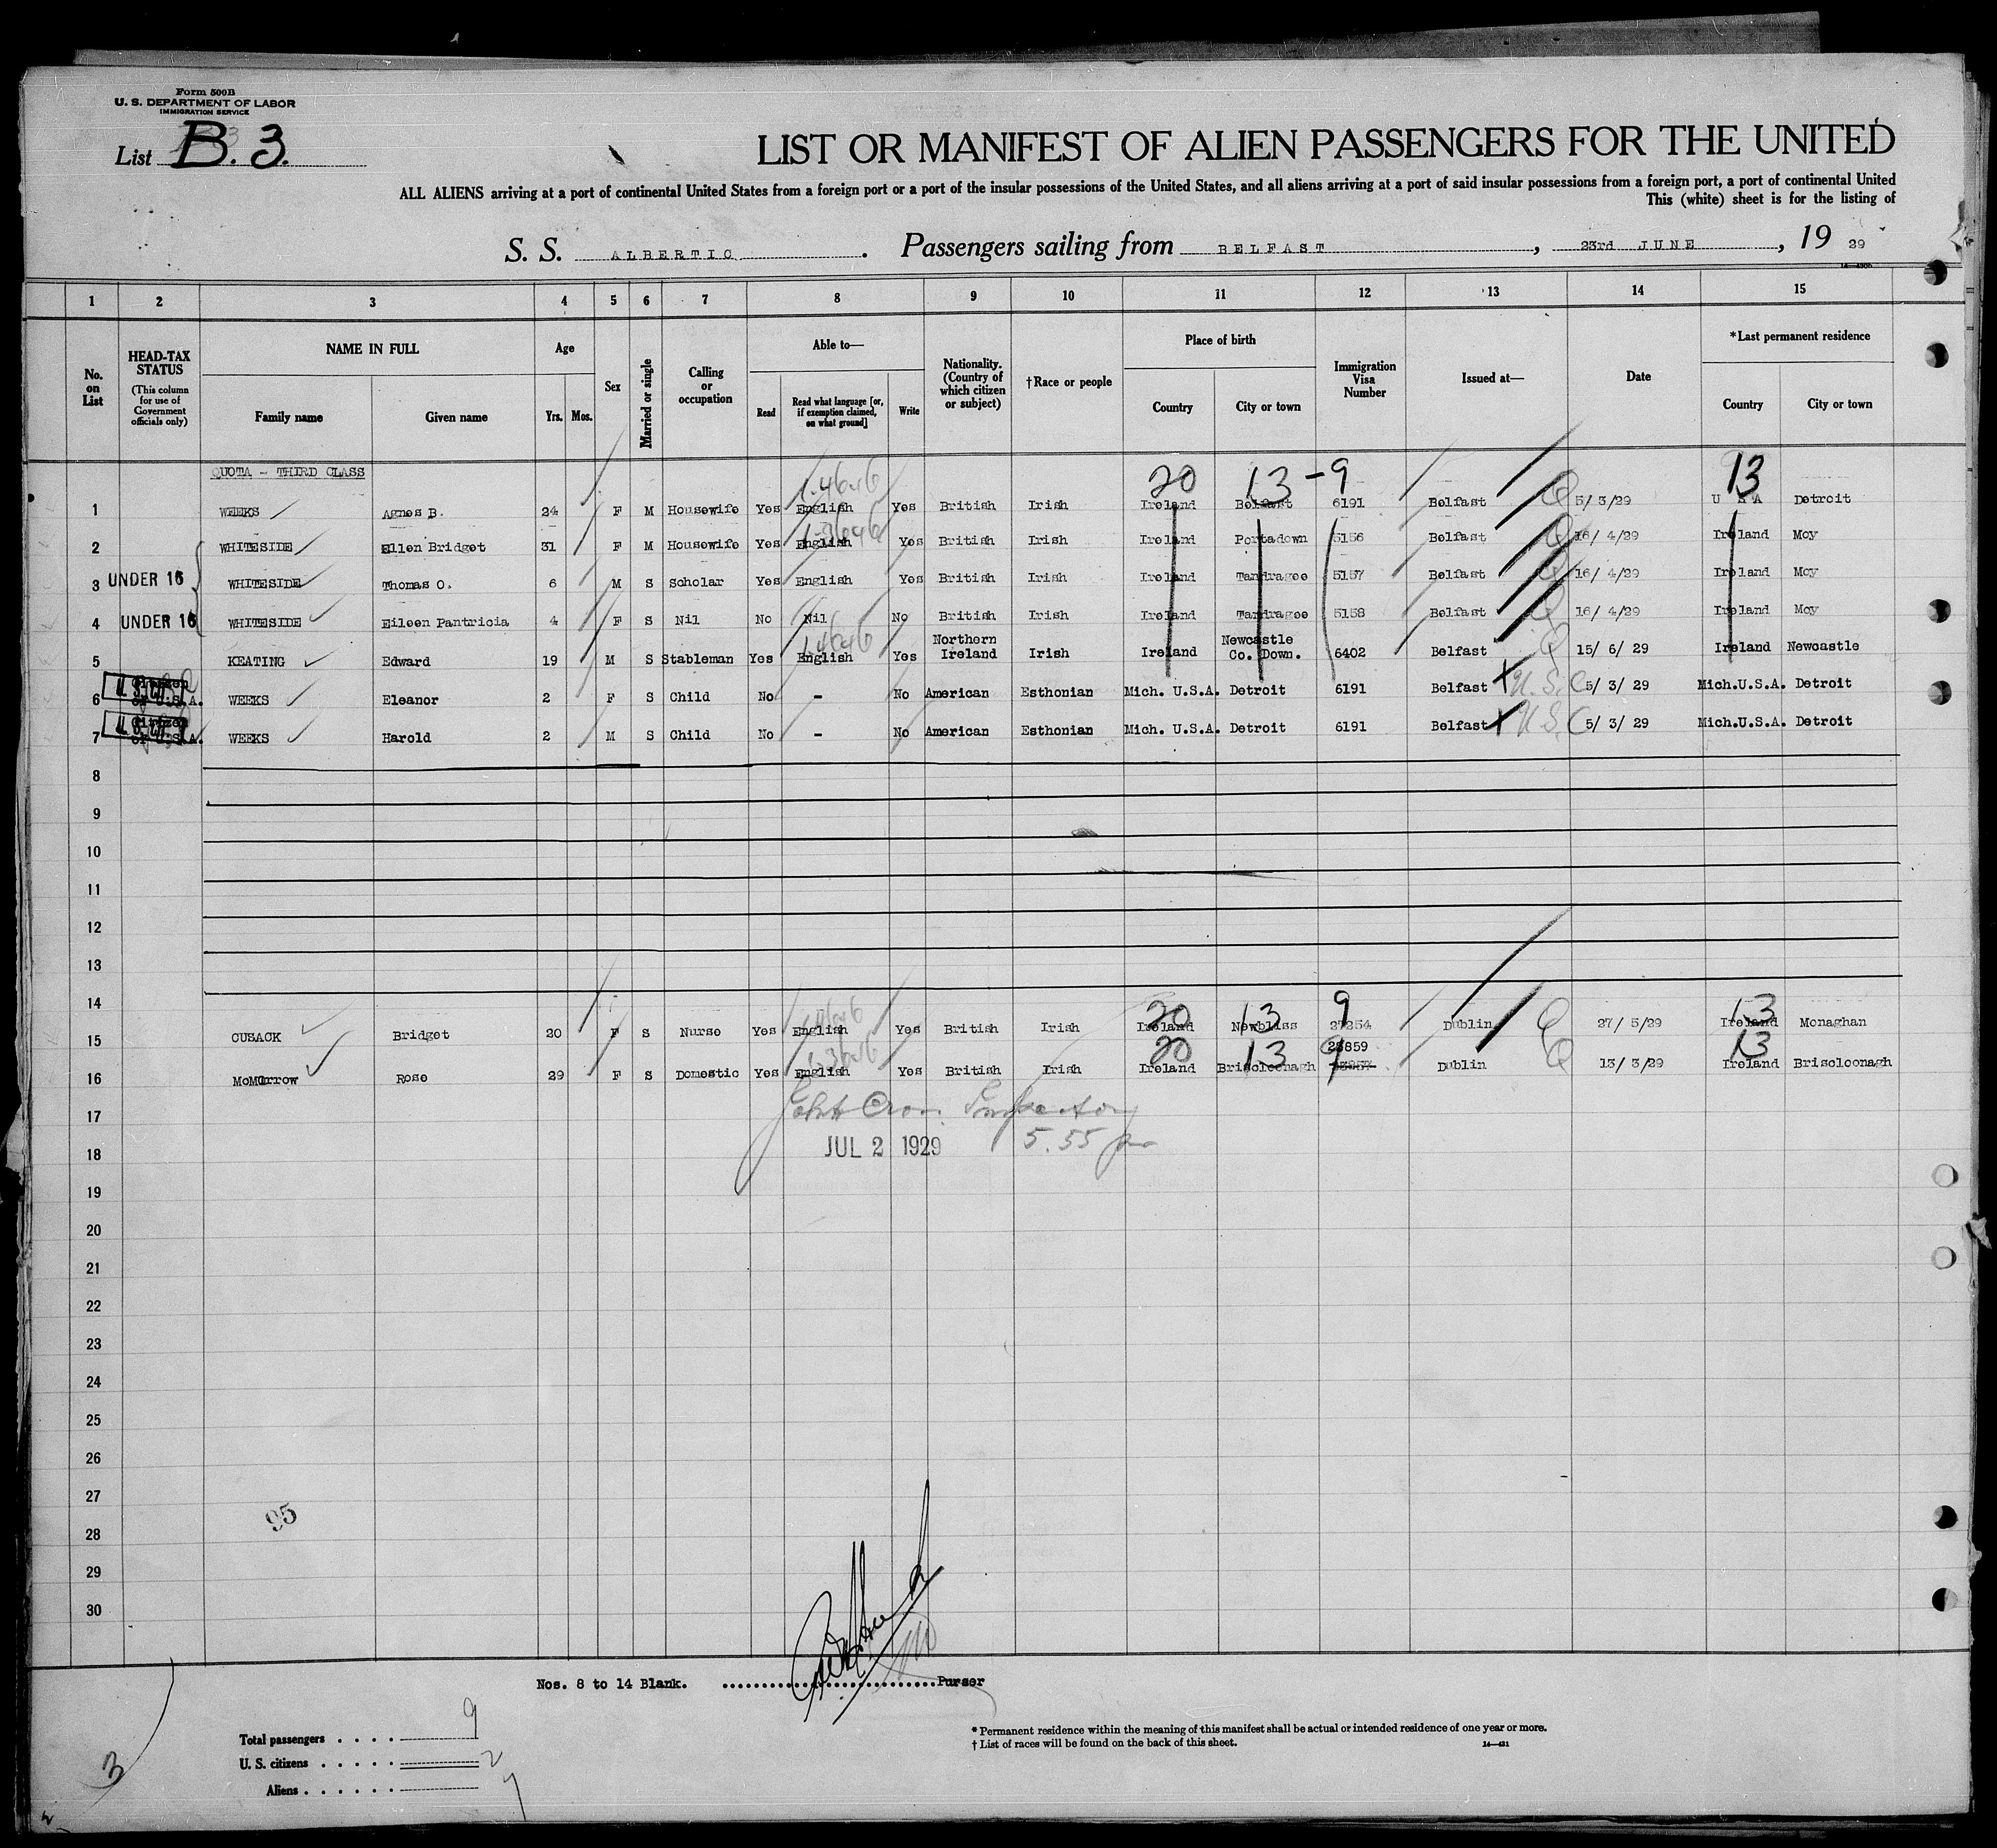 Form 500B
U. S. DEPARTMENT OF LABOR
IMMIGRATION SERVICE
List B. 3.
LIST OR MANIFEST OF ALIEN PASSENGERS FOR THE UNITED
ALL ALIENS arriving at a port of continental United States from a foreign port or a port of the insular possessions of the United States, and all aliens arriving at a port of said insular possessions from a foreign port, a port of continental United
This (white) sheet is for the listing of
S. S. ALBERTIC. Passengers sailing from BELFAST, 23rd JUNE, 19 29
1 2 3 4 5 6 7 8 9 10 11 12 13 14 15
No. on List
HEAD-TAX STATUS (This column for use of Government officials only)
NAME IN FULL
Family name Given name
Age
Yrs. Mos.
Sex
Married or single
Calling or occupation
Able to—
Read Read what language [or, if exemption claimed, on what ground] Write
Nationality. (Country of which citizen or subject)
†Race or people
Place of birth
Country City or town
Immigration Visa Number
Issued at—
Date
*Last permanent residence
Country City or town
QUOTA - THIRD CLASS
20 13 - 9 13
1 WEEKS Agnes B. 24 F M Housewife Yes English Yes British Irish Ireland Belfast 6191 Belfast Q 5/ 3/29 U S A Detroit
2 WHITESIDE Ellen Bridget 31 F M Housewife Yes English Yes British Irish Ireland Portadown 5156 Belfast Q 16/ 4/29 Ireland Moy
3 UNDER 16 WHITESIDE Thomas O. 6 M S Scholar Yes English Yes British Irish Ireland Tandragee 5157 Belfast Q 16/ 4/29 Ireland Moy
4 UNDER 16 WHITESIDE Eileen Pantricia 4 F S Nil No Nil No British Irish Ireland Tandragee 5158 Belfast Q 16/ 4/29 Ireland Moy
5 KEATING Edward 19 M S Stableman Yes English Yes Northern Ireland Irish Ireland Newcastle Co. Down. 6402 Belfast Q 15/ 6/ 29 Ireland Newcastle
6 Citizen of U.S.A. WEEKS Eleanor 2 F S Child No - No American Esthonian Mich. U.S.A. Detroit 6191 Belfast X U.S.C 5/ 3/ 29 Mich.U.S.A. Detroit
7 Citizen of U.S.A. WEEKS Harold 2 M S Child No - No American Esthonian Mich. U.S.A. Detroit 6191 Belfast X U.S.C 5/ 3/ 29 Mich.U.S.A. Detroit
8
9
10
11
12
13
14
20 13 9 13
15 CUSACK Bridget 20 F S Nurse Yes English Yes British Irish Ireland Newbliss 27254 Dublin Q 27/ 5/29 Ireland Monaghan
20 13 23859 9 13
16 McMorrow Rose 29 F S Domestic Yes English Yes British Irish Ireland Briscloonagh Dublin Q 13/ 3/29 Ireland Briscloonagh
17
JUL 2 1929 5.55 pm
18
19
20
21
22
23
24
25
26
27
95
28
29
30
Nos. 8 to 14 Blank. Purser
Total passengers 9
U. S. citizens 2
Aliens 7
* Permanent residence within the meaning of this manifest shall be actual or intended residence of one year or more.
† List of races will be found on the back of this sheet.
14—431
3